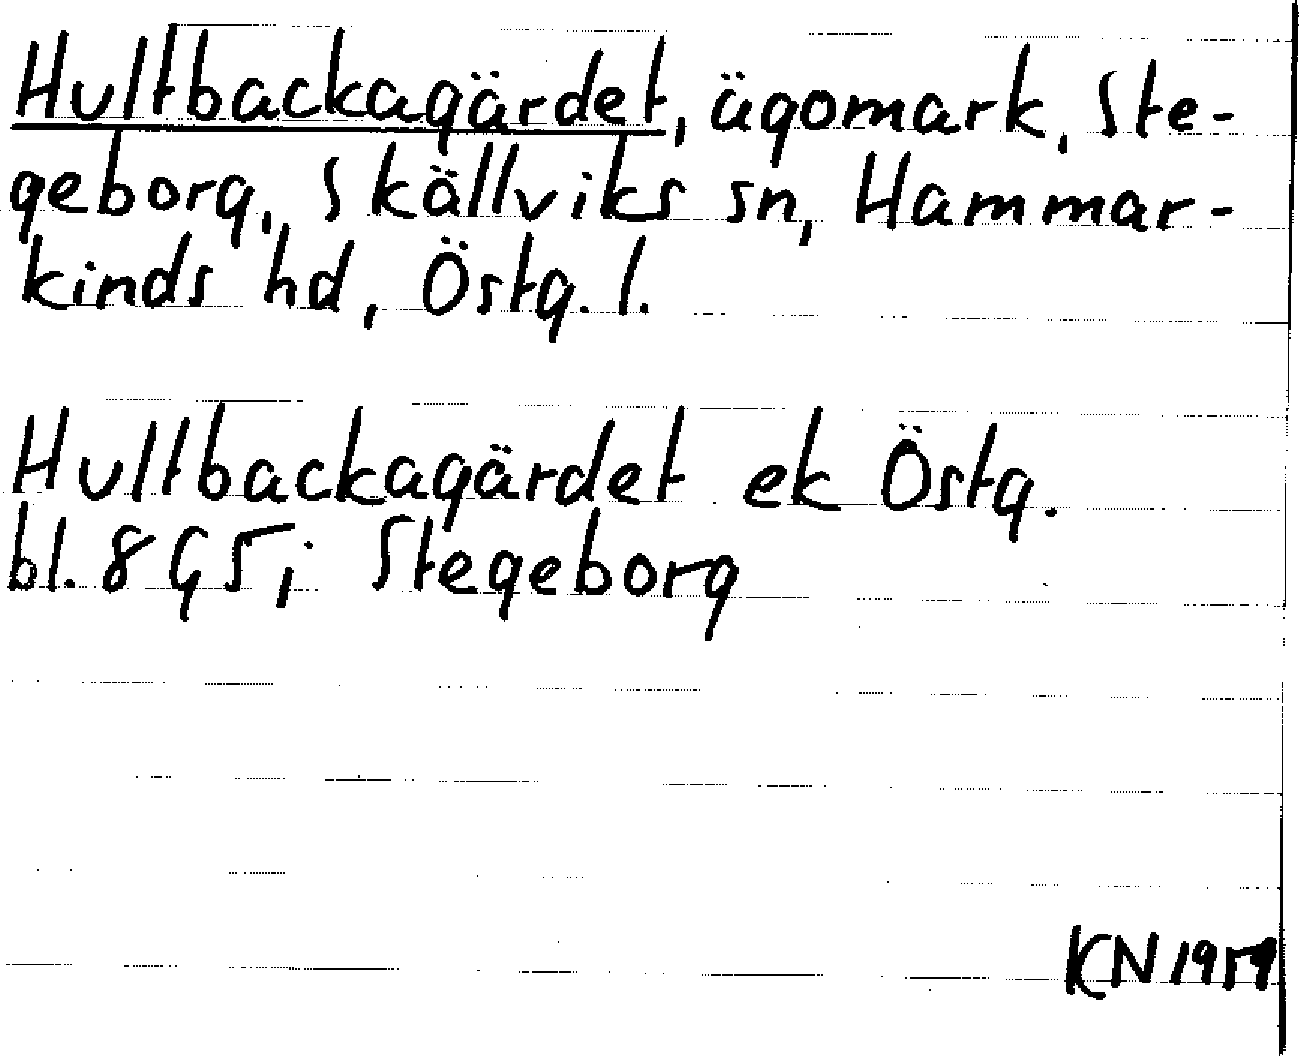 Hultbackagärdet, ägomark, Ste-
geborg, Skällviks sn, Hammar-
kinds hd, Östg. l.
Hultbackagärdet ek Östg.
bl. 8 G5; Stegeborg
KN 1959